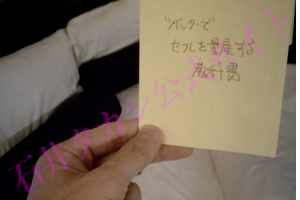 ツイッターで
セフレを量産する
教科書
石井タカシ公式サイト